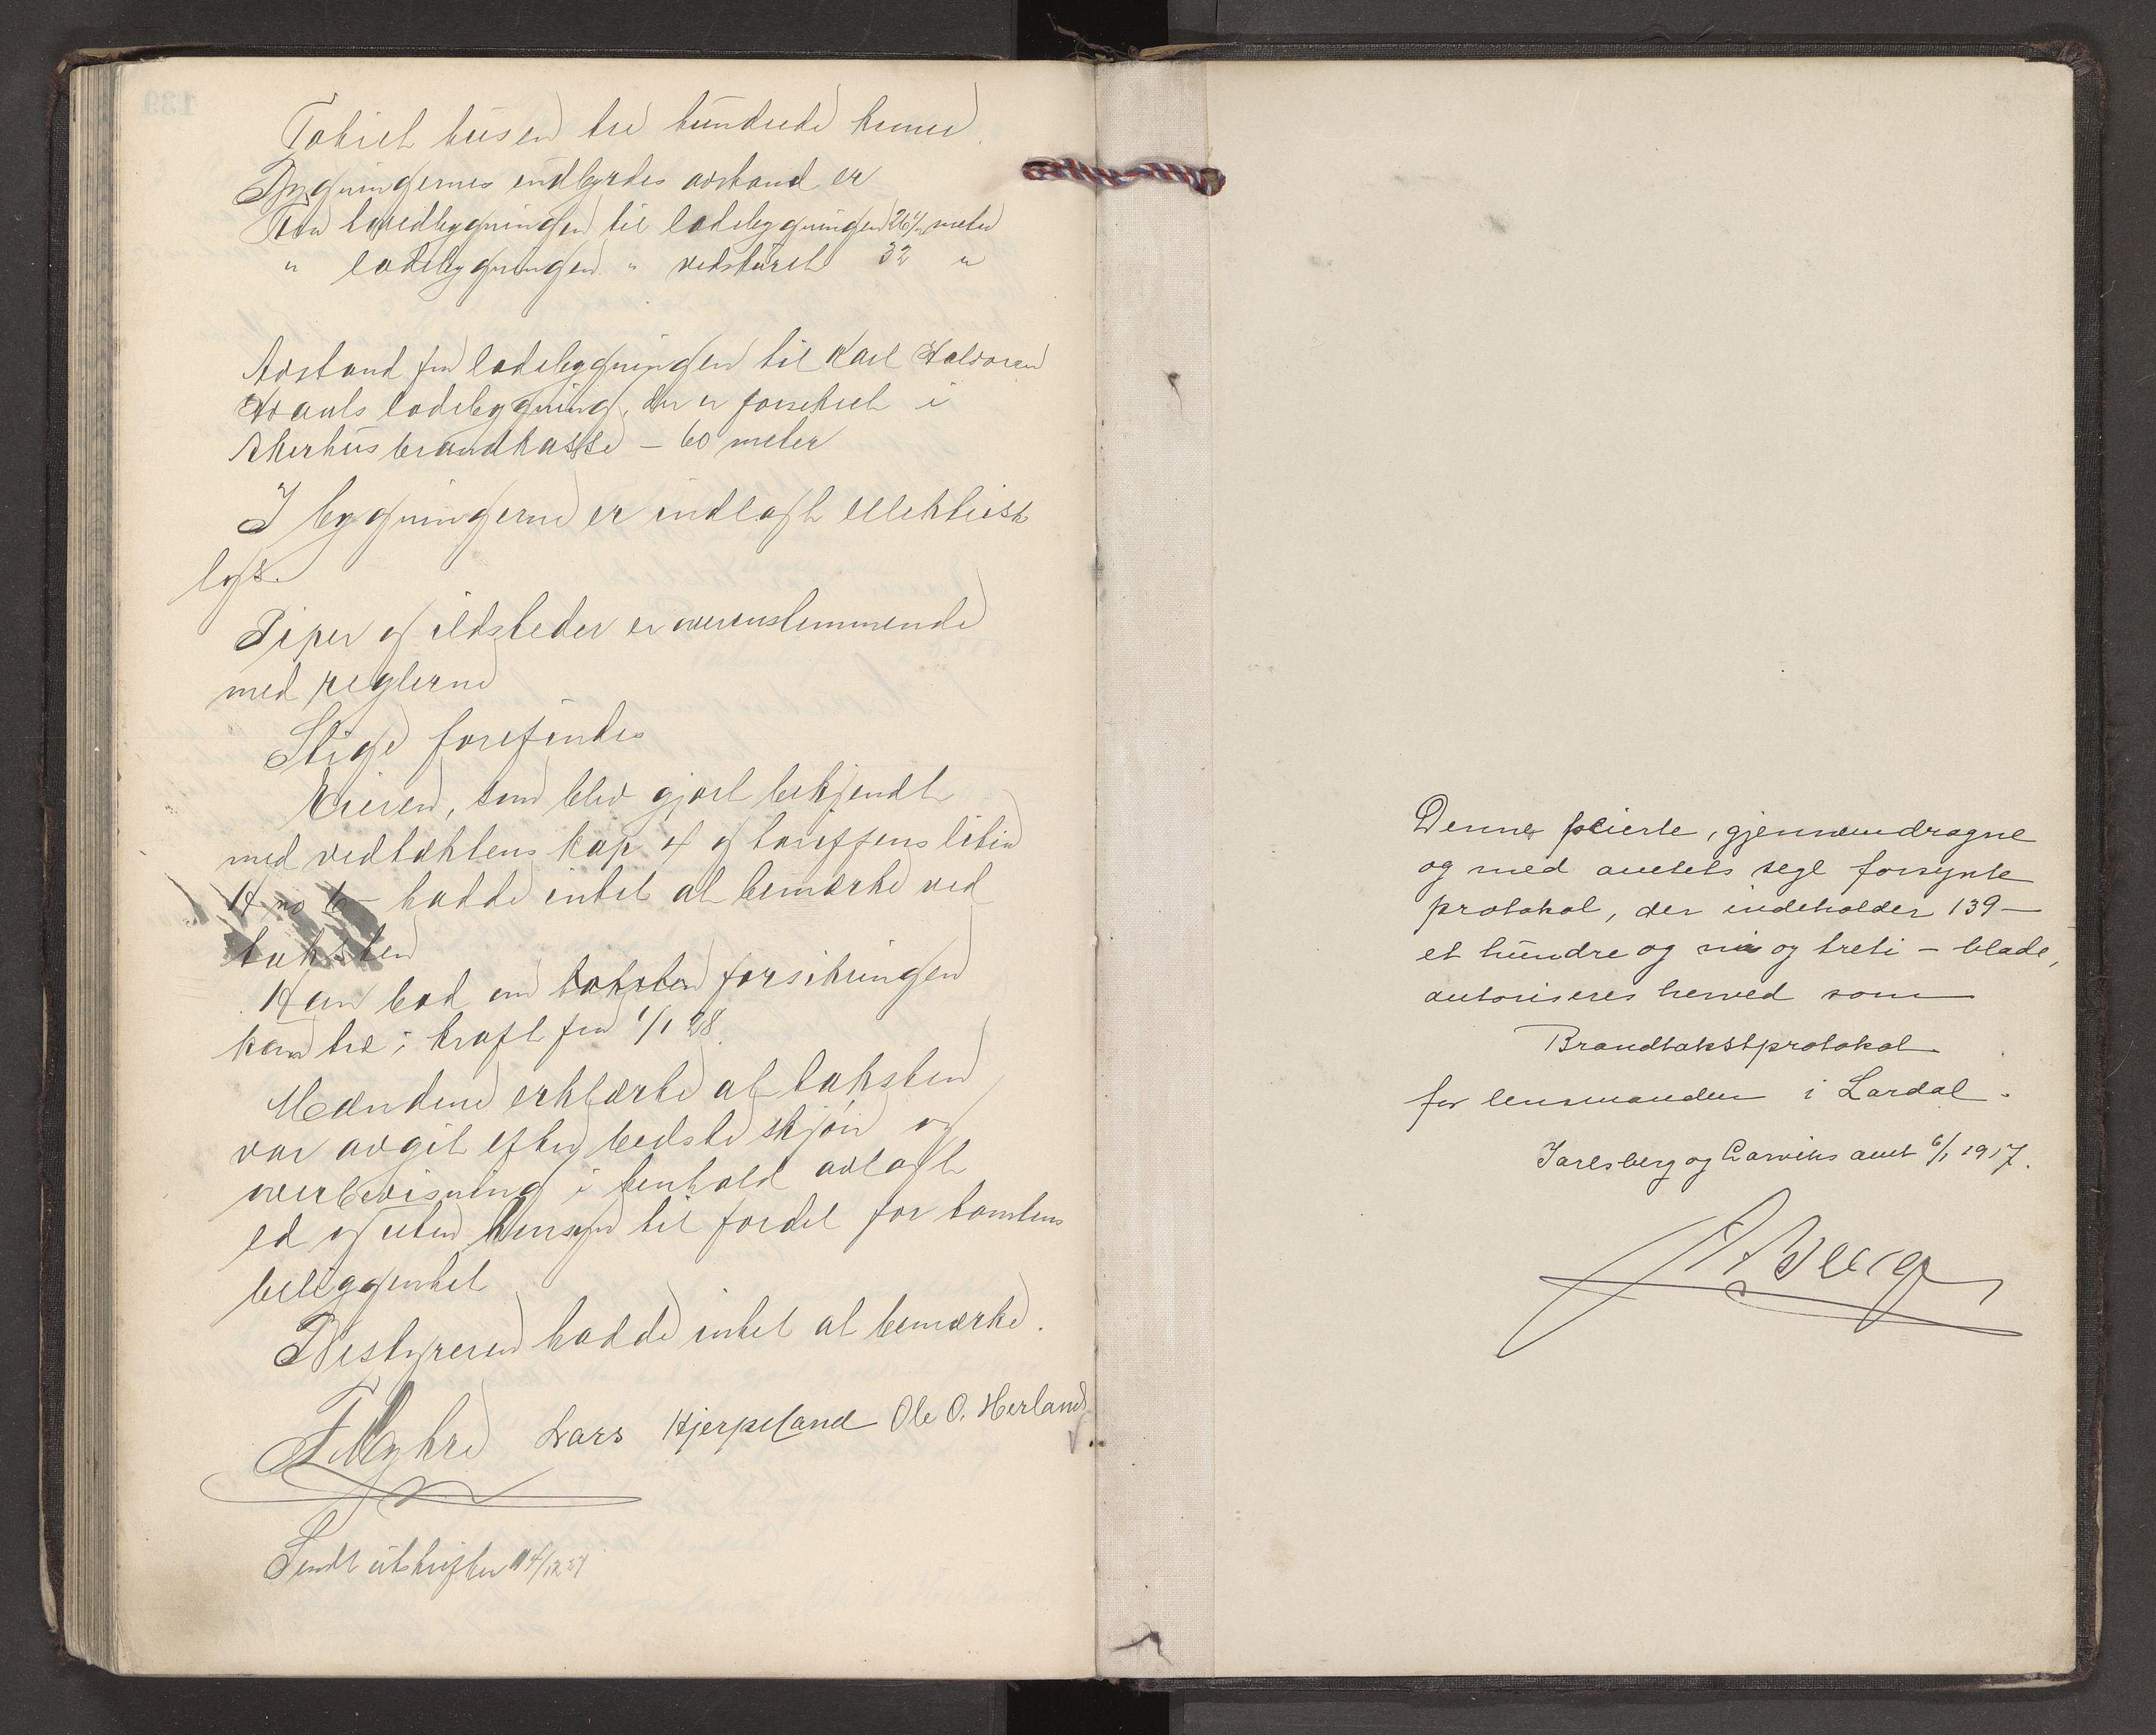 Tokiet tusen tre hundrede kroner.
Bygningernes indbyrdes avstand er
Fra hovedbygningen til ladebygningen 26 1/2 meter
" ladebygningen " vedskuret 32 "
Avstand fra ladebygningen til Karl Halvorsen
ladebygning, der er forsikret i
Akerhus brandkasse – 60 meter
I bygningerne er indlagt ellektrisk
lys.
Piper og ildsteder er overensstemmende
med reglerne
Stige forefindes
Eieren, som blev gjort bekjendt
med vedtæktens kap 4 og tariffens litra
H no 6 – hadde intet at bemærke ved
taksten
Han bad om taksten forsikringen
kan træ i kraft fra 1/1 28.
Mændene erklærte at taksten
var avgit efter bedste skjøn og
overbevisning i henhold avlagt
ed og uten hensyn til fordel for tomtens
beliggenhet
Bestyreren hadde intet at bemærke.
F Myhre Lars Hjerpeland Ole O. Herland
Sendt utskriften 14/12 27
Denne pleierte, gjennemdragne
og med amtets segl forsynte
protokol, der indeholder 139 –
et hundre og ni og treti – blade,
autoriseres herved som
Brandtakstprotokol
for lensmanden i Lardal.
Jarlsberg og Larviks amt 6/1 1917.
Berg
139